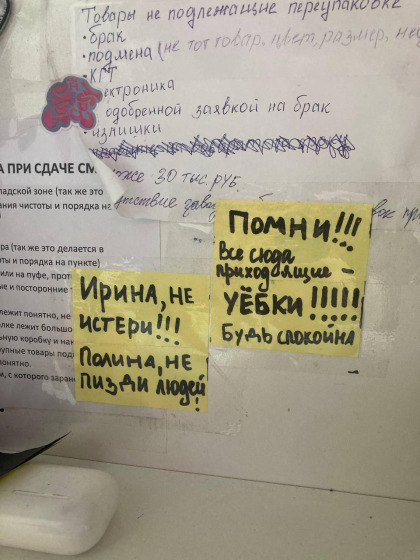 Товары не подлежащие переупаковке
• брак
• подмена (не тот товар, цвет, размер,
• КГТ
ектроника
одобренной заявкой на брак
излишки
30 тыс. руб.
А ПРИ СДАЧЕ СМ
ладской зоне (так же это
ания чистоты и порядка на
ра (так же это делается в
ты и порядка на пункте)
или на пуфе, прот
ые и посторонние
лежит понятно, не
олке лежит большо
ьную коробку и нак
рупные товары под
понятно.
м, с которого заран
Помни!!!
Все сюда
приходящие –
УЁБКИ!!!!!
Будь спокойна
Ирина, не
истери!!!
Полина, не
пизди людей!